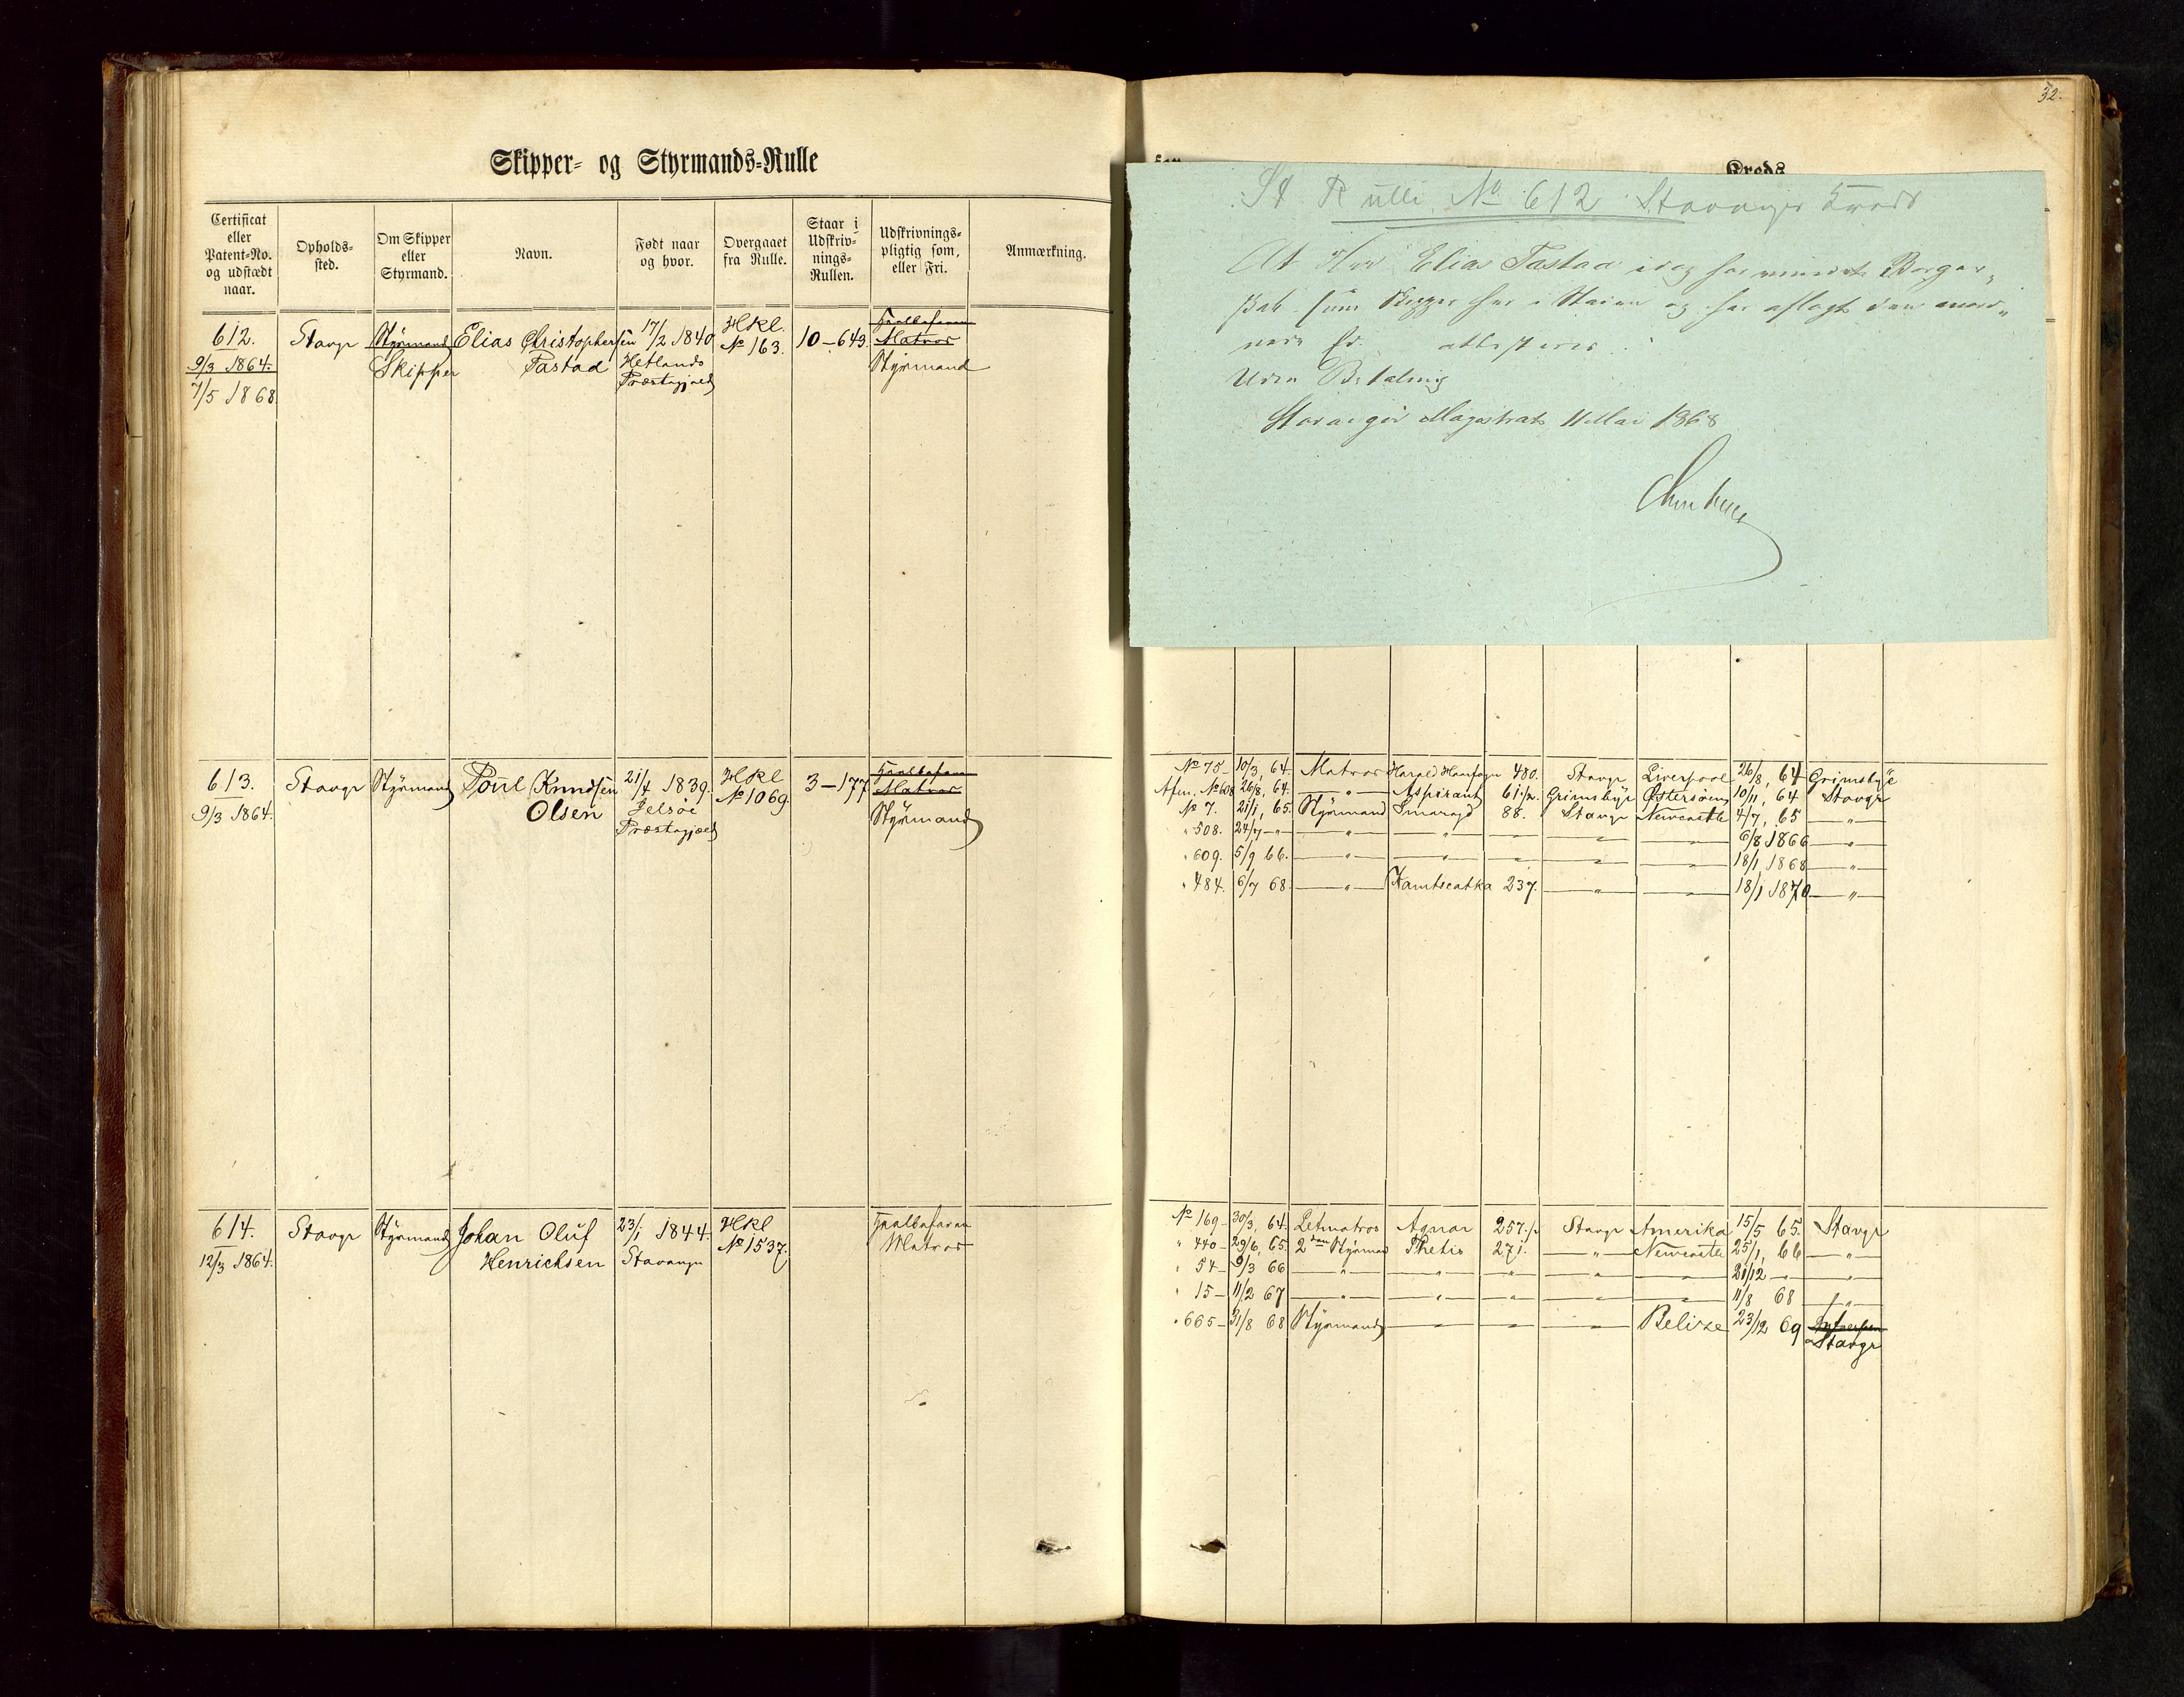 Skipper- og Styrmands-Rulle
Certificat eller Patent-No. og udstædt naar.
Opholds-sted.
Om Skipper eller Styrmand.
Navn.
Født naar og hvor.
Overgaaet fra Rulle.
Staar i Udskriv-nings-Rullen.
Udskrivnings-pligtig som, eller Fri.
Anmærkning.
612. Stavgr Styrmand Elias Christophersen 17/2 1840 Hkl. 10-643. Matros
9/3 1864. Skipper Tastad Hetlands No 163. Styrmand
7/5 1868. Præstegjæld
613. Stavgr Styrmand Poul Knudsen 21/4 1839. Hkl 3-177 Matros
9/3 1864. Olsen Jelsøe No 1069. Styrmand
Præstegjæld
614. Stavgr Styrmand Johan Oluf 23/1 1844. Hkl
12/3 1864. Henrichsen Stavanger No 1537. Matros
32.
Kreds
St Rulle No 612 Stavanger Kreds
At Elias Tastad idag har Borger-
skab som Skipper her i og har aflagt den
Ed.
Uden Betaling
Stavanger Magistrat 11 Mai 1868
No 75- 10/3, 64. Matros Harald Haarfagr 480. Stavgr Liverpool 26/8, 64 Grimsbye
No 608 26/8, 64. " Aspirant 61 1/2. Grimsbye Østersøen 10/11, 64 Stavgr
No 7. 21/1, 65. Styrmand Smaragd 88. Stavgr Newcastle 4/7, 65 "
" 508. 24/7 - " " " " " " 6/8 1866 "
" 609. 5/9 66. " " " " " 18/1 1868 "
" 484. 6/7 68. " Kamtscatka 237. " " 18/1 1870 "
No 169- 30/3, 64. Letmatros Agnar 257 1/2 Stavgr Amerika 15/5 65. Stavgr
" 440- 29/6, 65. 2den Styrmand Thetis 271. " Newcastle 25/1, 66 "
" 54- 9/3 66 " " " " " 21/12 - " "
" 15- 11/2 67 " " " " " 11/8 68 "
" 665- 31/8 68 Styrmand " " " Belize 23/12 69
Stavgr